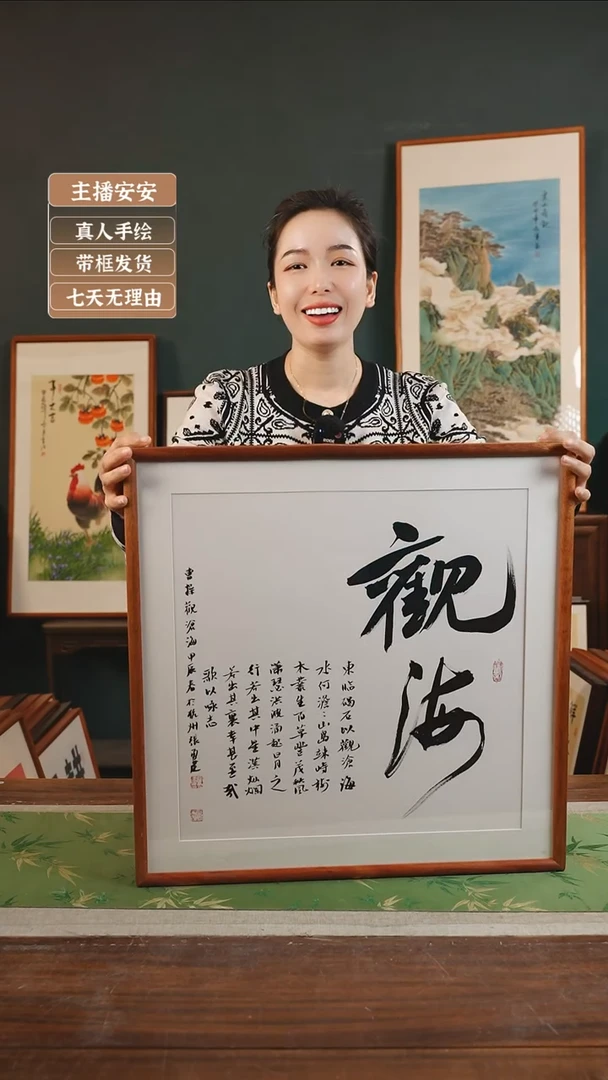 主播安安
真人手绘
带框发货
七天无理由
觀海
東臨碣石以觀滄海
水何澹〻山島竦峙樹
木叢生百草豐茂秋風
蕭瑟洪波涌起日月之
行若出其中星漢燦爛
若出其裏幸甚至哉
歌以咏志
曹操觀滄海甲辰春於杭州張